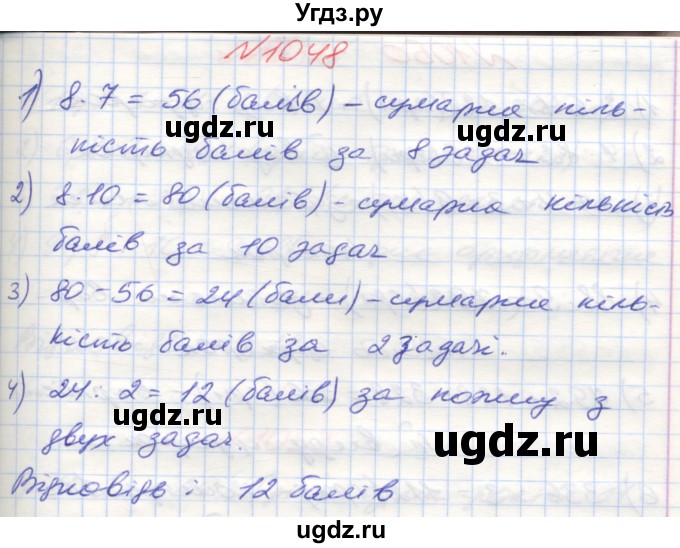 Угдз.ру
N1048
1) 8 · 7 = 56 (балів) - сумарна кіль-
кість балів за 8 задач
ugdz.ru ugdz.ru
2) 8 · 10 = 80 (балів) - сумарна кількість
балів за 10 задач
ugdz.ru
3) 80 - 56 = 24 (бали) - сумарна кіль-
кість балів за 2 задачі.
ugdz.ru
4) 24 : 2 = 12 (балів) за кожну з
двух задач.
ugdz.ru ugdz.ru
Відповідь: 12 балів
ugdz.ru